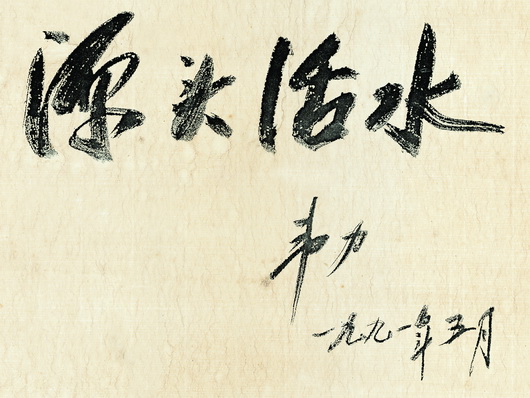 源头活水
韦力
一九九一年五月